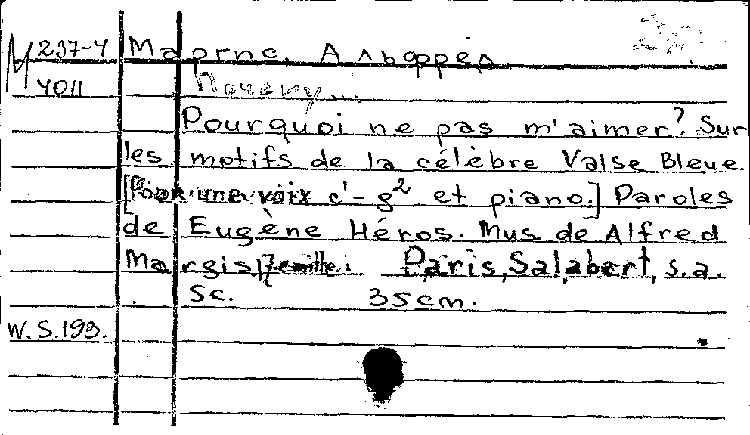 M 237-4 Маржис, Альфред
4011
Pourquoi ne pas m'aimer? Sur
les motifs de la célèbre Valse Bleue.
[Pour une voix c'-g² et piano.] Paroles
de Eugène Héros. Mus de Alfred
Margis, Paris, Salabert, s.a.
Sc. 35cm.
W.S.193.